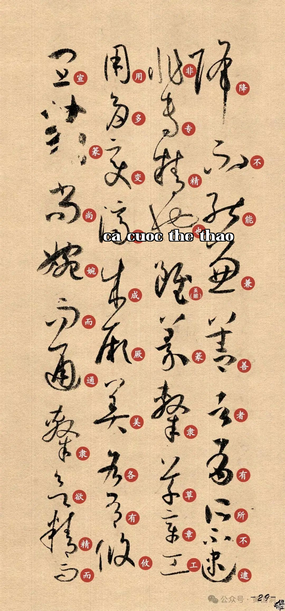 降不能兼善者有所不逮
非专精也虽篆隶草章工
用多变济成厥美各有攸
宜篆尚婉而通隶欲精而
cá cuoc the thao
-29-
公众号